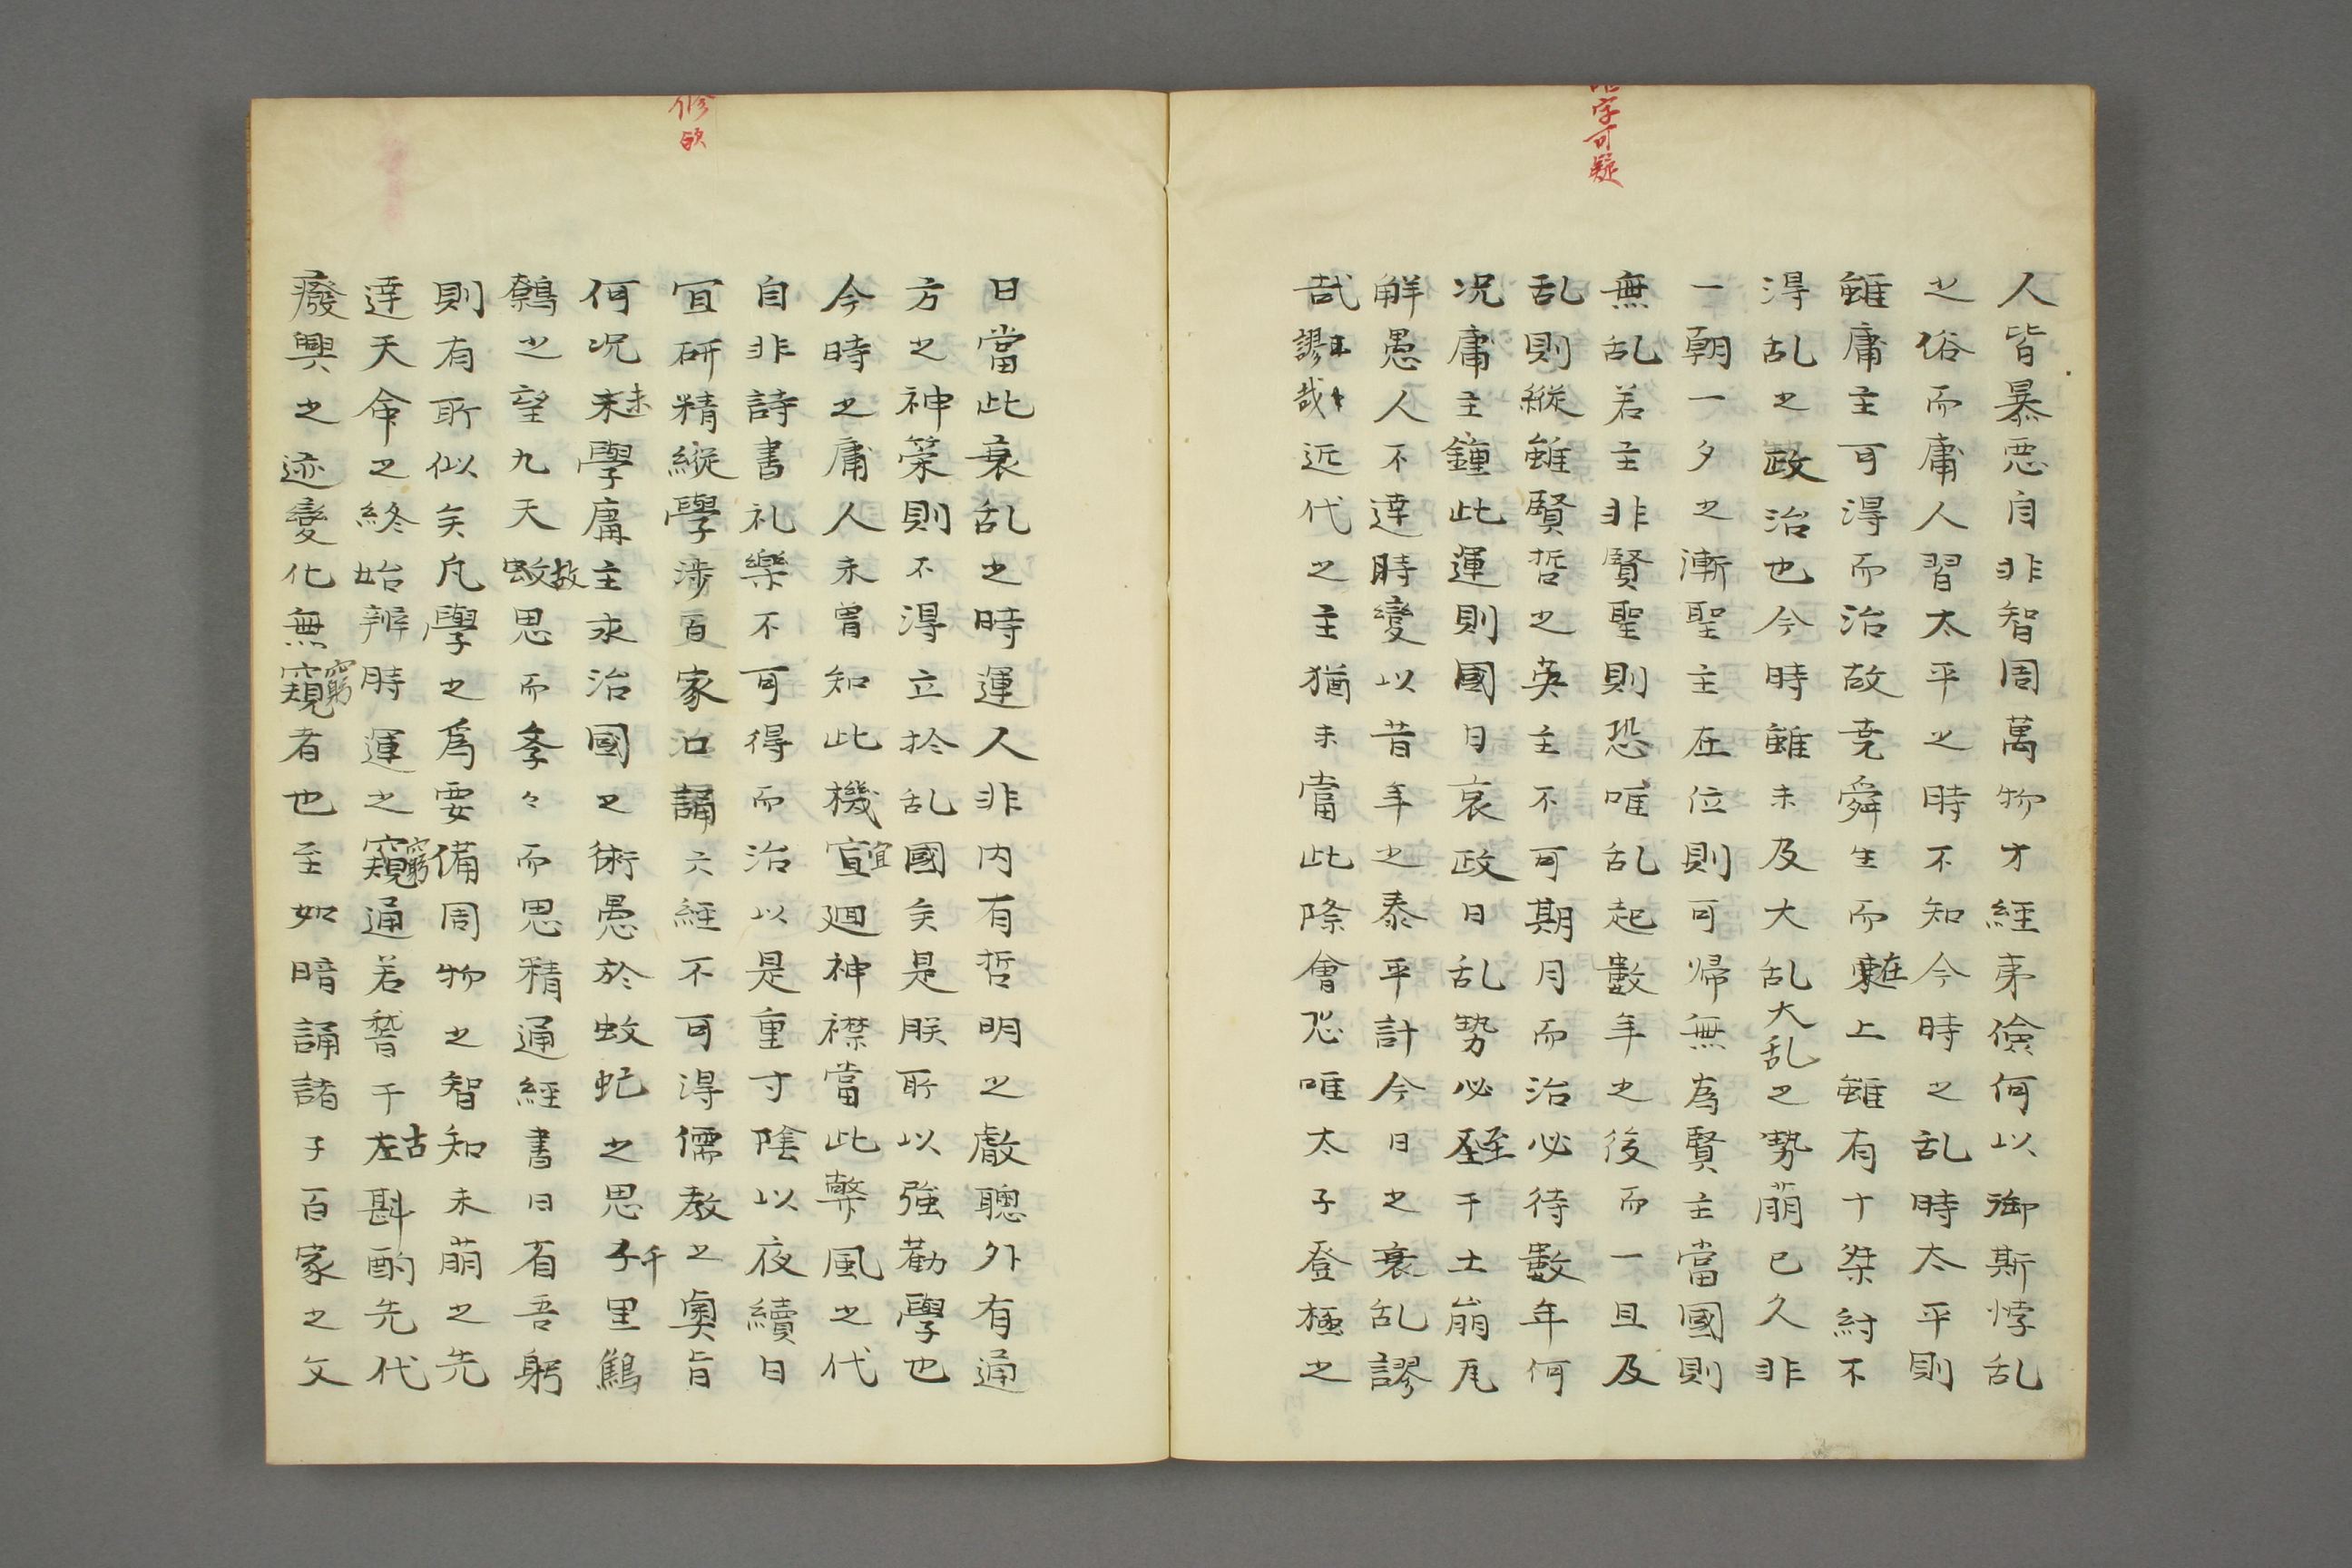 唯字可疑
人皆暴悪自非智周萬物才経夷儉何以御斯悖乱
之俗而庸人習太平之時不知今時之乱時太平則
雖庸主可淂而治故尭舜生而在上雖有十桀紂不
淂乱之政治也今時雖未及大乱大乱之勢萠已久非
一朝一夕之漸聖主在位則可帰無為賢主當國則
無乱若主非賢聖則恐唯乱起數年之後而一旦及
乱則縦雖賢哲之英主不可期月而治必待數年何
况庸主鐘此運則國日衰政日乱勢必至于土崩瓦
解愚人不達時變以昔年之泰平計今日之衰乱謬
哉 謬哉 近代之主猶未當此際會恐唯太子登極之
修欤
日當此衰乱之時運人非内有哲明之叡聰外有通
方之神策則不淂立於乱國矣是朕所以強勸學也
今時之庸人未曽知此機宣 宜 廻神襟當此弊風之代
自非詩書礼樂不可得而治以是重寸陰以夜續日
宜研精縦學渉百家口誦六経不可淂儒教之奥旨
何况末 未 學庸主求治國之術愚於蚊虻之思子 千 里鷦
鷯之望九天蚊 故 思而孝々而思精通経書日省吾躬
則有所似矣凡學之為要備周物之智知未萠之先
達天命之終始辨時運之窺 窮 通若稽千左 古 斟酌先代
癈興之迹變化無窺 窮 者也至如暗誦諸子百家之文